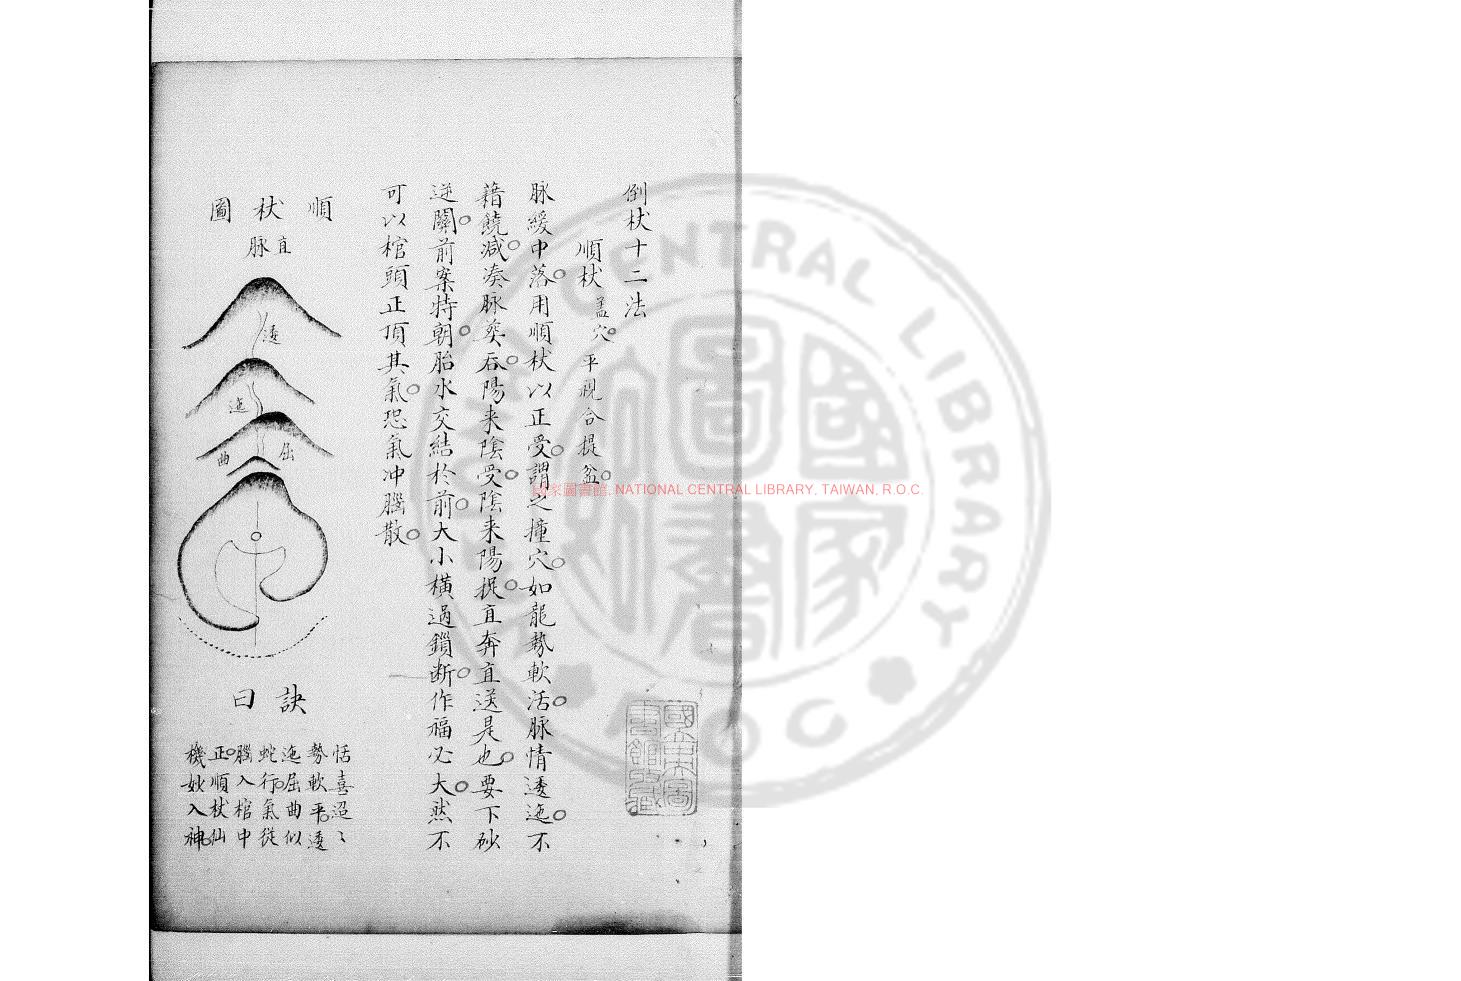 倒杖十二法
順杖 盖穴平視合提盆
脉緩中落用順杖以正受謂之撞穴如龍勢軟活脉情逶迤不
藉饒減湊脉葬吞陽来陰受陰来陽捉直奔直送是也要下砂
逆關前案特朝胎水交結於前大小橫過鎖断作福必大然不
可以棺頭正頂其氣恐氣冲腦散
順杖圖
直脉
逶
迤
屈
曲
訣曰
恬喜迢〻
勢軟平逶
迤屈曲似
蛇行氣從
腦入棺中
正順杖仙
機妙入神
國家圖書館
國家圖書館, NATIONAL CENTRAL LIBRARY, TAIWAN, R.O.C.